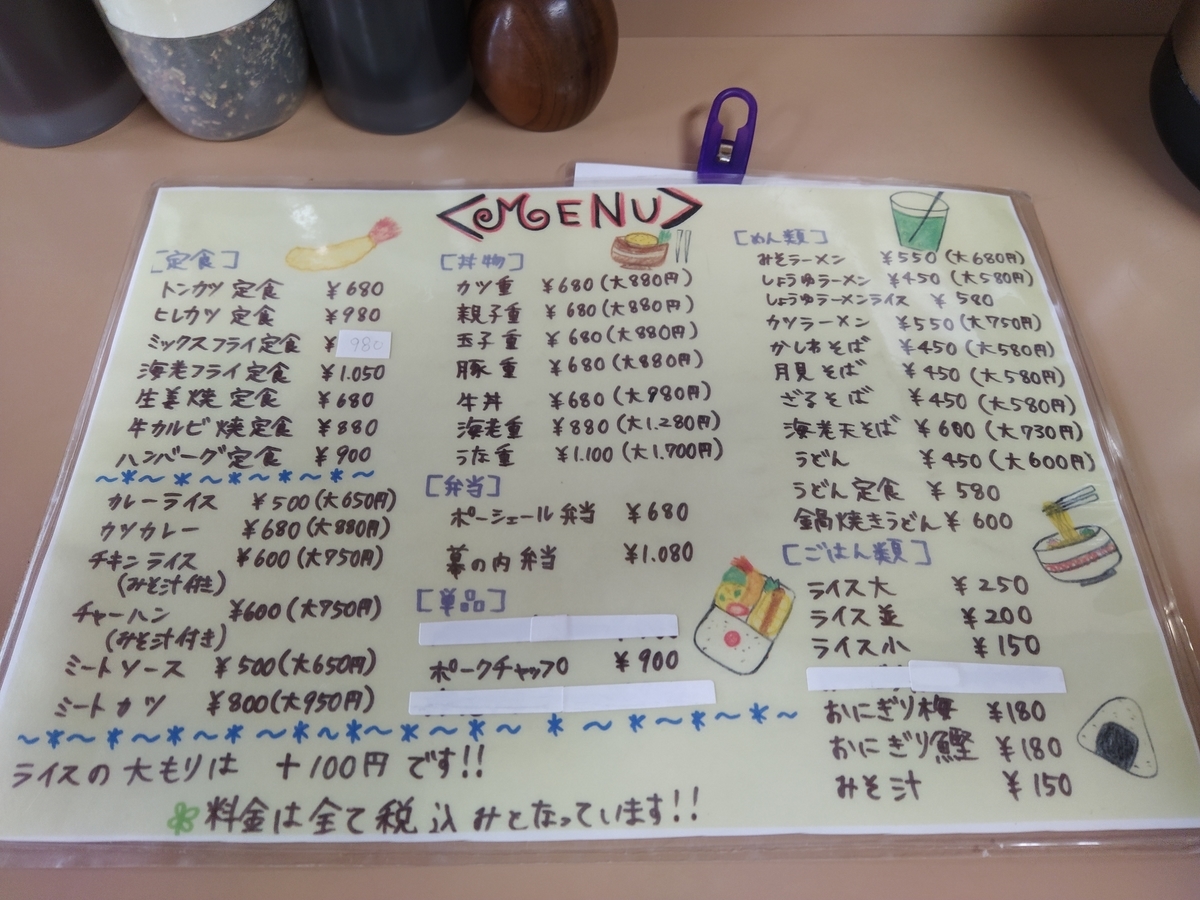 <MENU>
[定食]
トンカツ定食 ¥680
ヒレカツ定食 ¥980
ミックスフライ定食 ¥980
海老フライ定食 ¥1.050
生姜焼定食 ¥680
牛カルビ焼定食 ¥880
ハンバーグ定食 ¥900
~*~*~*~*~*~
カレーライス ¥500(大650円)
カツカレー ¥680(大880円)
チキンライス ¥600(大750円)
(みそ汁付き)
チャーハン ¥600(大750円)
(みそ汁付き)
ミートソース ¥500(大650円)
ミートカツ ¥800(大950円)
[丼物]
カツ重 ¥680(大880円)
親子重 ¥680(大880円)
玉子重 ¥680(大880円)
豚重 ¥680(大880円)
牛丼 ¥680(大980円)
海老重 ¥880(大1.280円)
うな重 ¥1.100(大1.700円)
[弁当]
ポーシェール弁当 ¥680
幕の内弁当 ¥1.080
[単品]
ポークチャップ ¥900
[めん類]
みそラーメン ¥550(大680円)
しょうゆラーメン ¥450(大580円)
しょうゆラーメンライス ¥580
カツラーメン ¥550(大750円)
かしわそば ¥450(大580円)
月見そば ¥450(大580円)
ざるそば ¥450(大580円)
海老天そば ¥600(大730円)
うどん ¥450(大600円)
うどん定食 ¥580
鍋焼きうどん ¥600
[ごはん類]
ライス大 ¥250
ライス並 ¥200
ライス小 ¥150
おにぎり梅 ¥180
おにぎり鰹 ¥180
みそ汁 ¥150
~*~*~*~*~*~*~*~*~*~*~*~*~
ライスの大もりは +100円です!!
料金は全て税込みとなっています!!